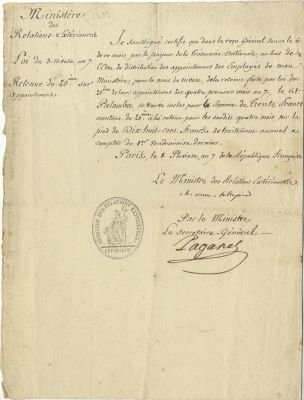 Ministère
des
Relations Extérieures
Loi du 3. Nivose, an 7
Retenue du 20.me sur
appointements.
Je soussigné certifie que dans le reçu Général donné le 6
de ce mois par le payeur de la Trésorerie Nationale, au bas de
l'État de distribution des appointements des Employés de mon
Ministère, pour le mois de Nivose, de la retenue faite par lui du
20.me de leurs appointements des quatre premiers mois an 7. le cit.
se trouve inclus pour la Somme de Trente francs
montant du 20.me à lui retenu pour les susdits quatre mois, sur le
pied de Dix huit cent francs de traitement annuel à
compter du 1er Vendemiaire dernier.
Paris, le 8. Pluviose, an 7 de la République française
Le Ministre des Relations Extérieures
Par le Ministre
Le secrétaire-Général
Paganel
RELATIONS EXTERIEURES